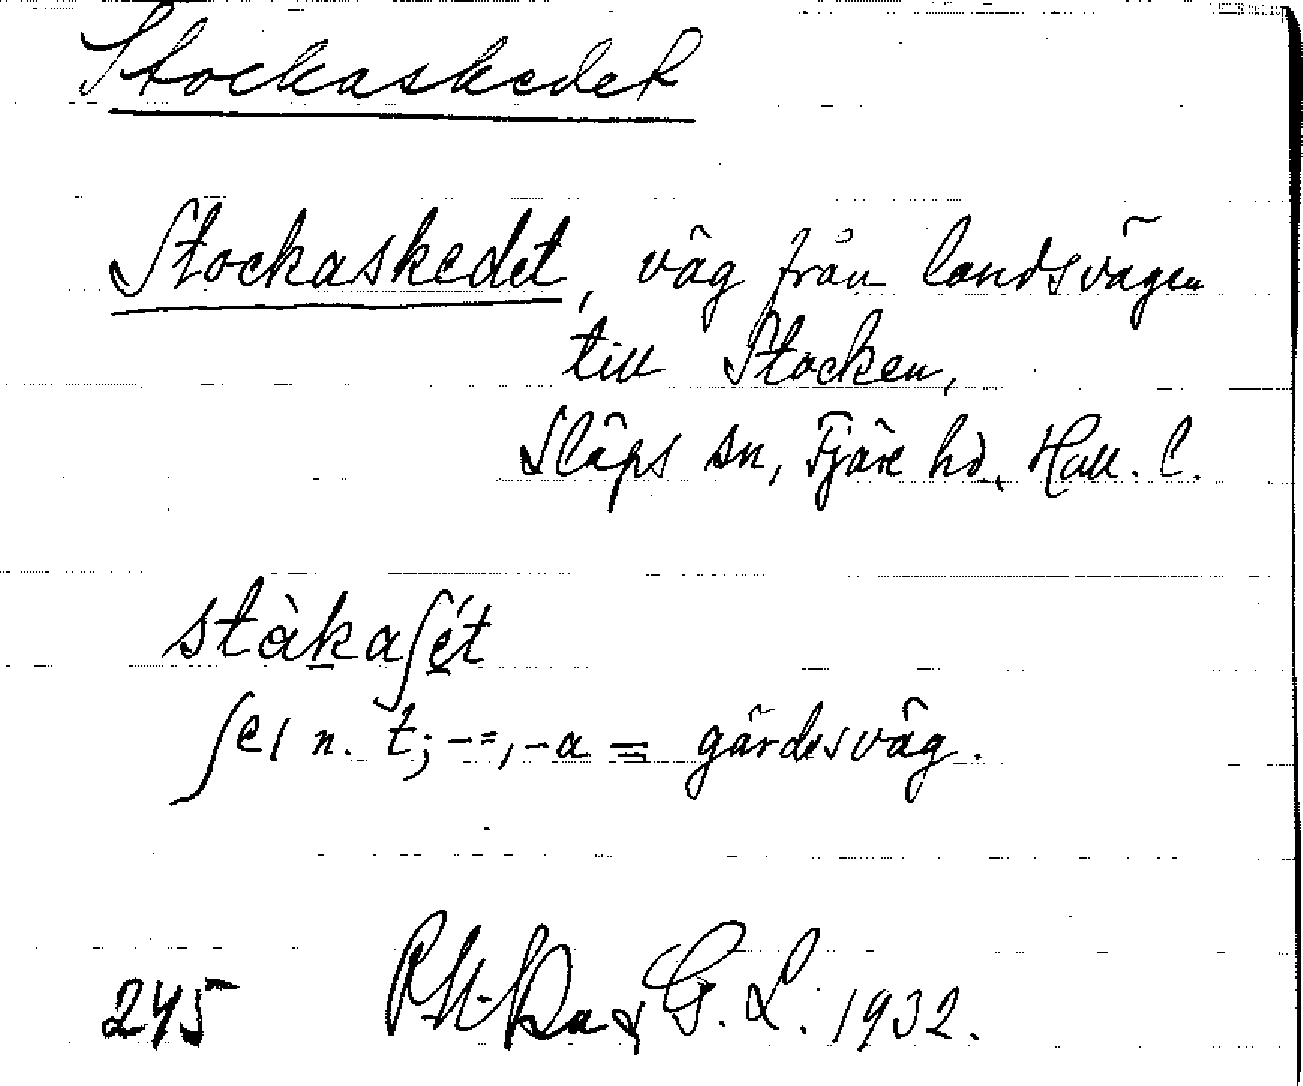 Stockaskedet
Stockaskedet, väg från landsvägen
till Stocken,
Släps sn, Fjäre hd, Hall. l.
stàkaʃét
ʃe, n. t; -=, -a = gärdesväg.
245 G. L. 1932.